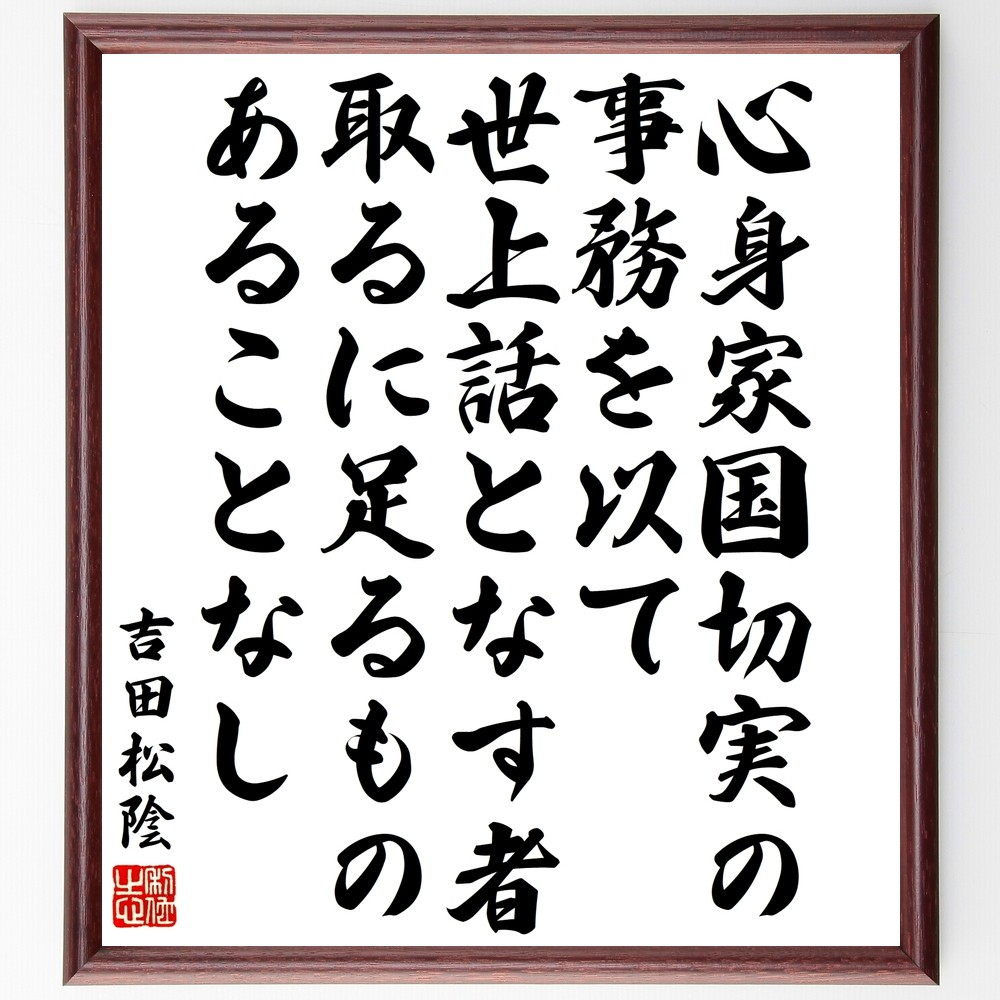 心身家国切実の
事務を以て
世上話となす者
取るに足るもの
あることなし
吉田松陰